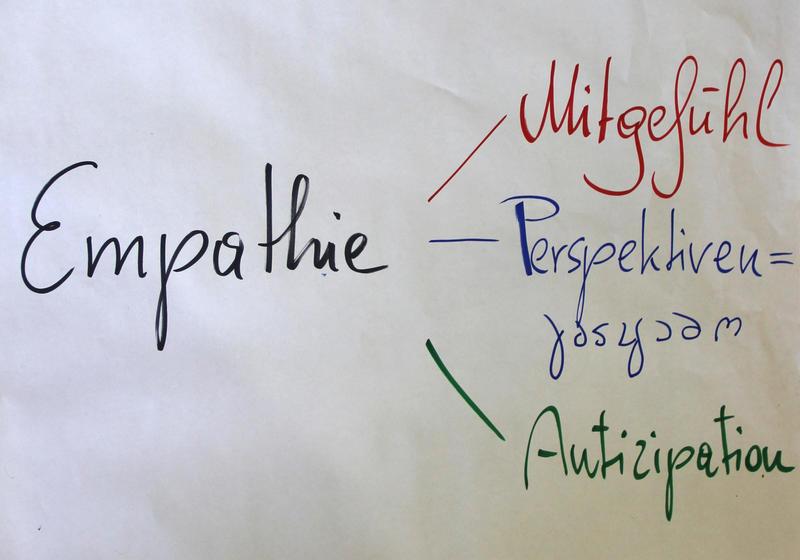 Empathie
Mitgefühl
Perspektiven=
wechsel
Antizipation